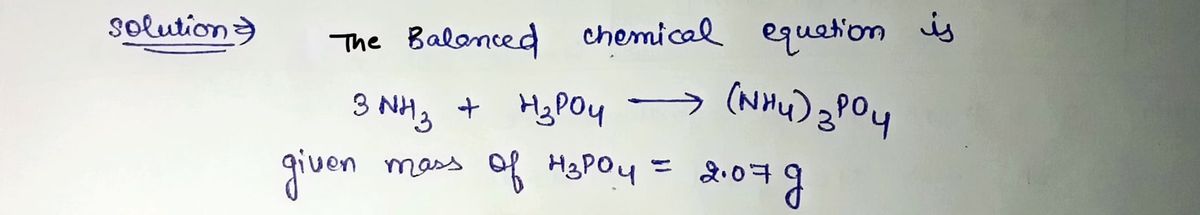 Solution ⇒ The Balanced chemical equation is
3 NH₃ + H₃PO₄ → (NH₄)₃PO₄
given mass of H₃PO₄ = 2.07 g